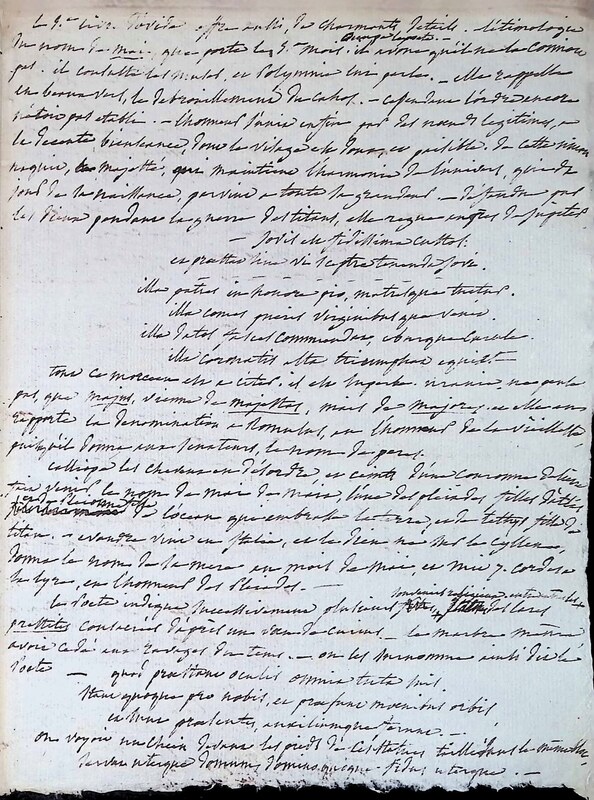 Le 5.e livre d'ovide offre aussi, de charmants details. L'etimologie
du nom de mai, que porte le 5.e mois. il avoue qu'il ne la connoit
pas. il consulte les muses, et Polymnie lui parle. — elle rappelle
en beaux vers, le debrouillement du cahos. — cependant l'ordre encore
n'etoit pas etabli. — l'honneur s'unit enfin par des nœuds legitimes, a
la decente bienseance, dont le visage est doux, et paisible. de cette union
naquit, la majesté, qui maintient l'harmonie de l'univers, qui des
jour de sa naissance, parvint a toute sa grandeur — defendue par
les dieux pendant la guerre des titans, elle regne aupres de Jupiter
— Jovis est fidissima custos:
et præstat sine vi sceptra tenenda Jovi.
illa patres in honore pio, matresque tuetur.
illa comes pueris virginibusque venit.
illa datos fasces commendat, eburque curule.
illa coronatis alta triumphat equis
tout ce morceau est a citer. il est superbe. uranie, ne pense
pas, que majus, vienne de majestas, mais de majores. et elle en
rapporte la denomination a Romulus, en l'honneur de la vieillesse
puisqu'il donne aux senateurs, le nom de peres.
calliope les cheveux en desordre, et ceinte d'une couronne de lierre
fait venir le nom de mai de maia l'une des pleiades filles d'atlas
et de Pleione
de l'ocean qui embrasse la terre, et de tethys fille de
titan. — evandre vint en Italie, et le dieu né sur le Cyllene,
donna le nom de sa mere au mois de mai, et mit 7. cordes a
sa lyre, en l'honneur des Pleiades. —
le Poete indique successivement plusieurs des lares
præstites consacrés d'après un vœu de curius. — le marbre même
avoit cedé aux ravages du tems. — on les surnomme ainsi dit le
Poete — quod præstant oculis omnia tuta suis.
stant quoque pro nobis, et præsunt mœnibus urbis,
et sunt præsentes, auxiliumque ferunt. —
on voyoit un chien devant les pieds de ces statues taillé dans le même bloc
servat uterque domum, domino quoque fidus uterque. —